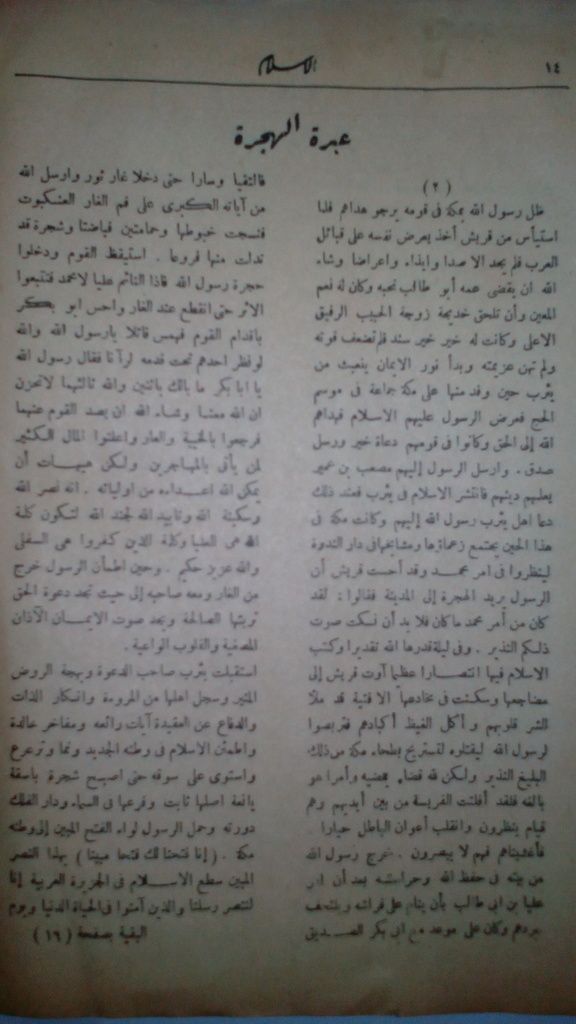 ١٤
الاسلام
عبرة الهجرة
( ٢ )
ظل رسول الله بمكة فى قومه يرجو هداهم فلما
استيأس من قريش أخذ يعرض نفسه على قبائل
العرب فلم يجد الا صدا وايذاء واعراضا وشاء
الله ان يقضى عمه أبو طالب نحبه وكان له نعم
المعين وأن تلحق خديجة زوجة الحبيب الرفيق
الاعلى وكانت له خير خير سند فلم تضعف قوته
ولم تهن عزيمته وبدأ نور الايمان ينبعث من
يثرب حين وفد منها على مكة جماعة فى موسم
الحج فعرض الرسول عليهم الاسلام فهداهم
الله إلى الحق وكانوا فى قومهم دعاة خير ورسل
صدق . وارسل الرسول إليهم مصعب بن عمير
يعلمهم دينهم فانتشر الاسلام فى يثرب فعند ذلك
دعا اهل يثرب رسول الله إليهم وكانت مكة فى
هذا الحين يجتمع زعماؤها ومشايخها فى دار الندوة
لينظروا فى امر محمد وقد أحست قريش أن
الرسول يريد الهجرة إلى المدينة فقالوا : لقد
كان من أمر محمد ما كان فلا بد أن نسكت صوت
ذلكم النذير . وفى ليلة قدرها الله تقديرا وكتب
الاسلام فيها انتصارا عظيما آوت قريش إلى
مضاجعها وسكنت فى مخادعها الا فتية قد ملأ
الشر قلوبهم وأكل الغيظ أكبادهم فتربصوا
لرسول الله ليقتلوه لتستريح بطحاء مكة من ذلك
البليغ النذير ولكن لله قضاء يمضيه وأمرا هو
بالغه فلقد أفلتت الفريسة من بين أيديهم وهم
قيام ينظرون وانقلب أعوان الباطل حيارا .
فأغشيناهم فهم لا يبصرون . خرج رسول الله
من بيته فى حفظ الله وحراسته بعد أن امر
عليا بن ابى طالب بأن ينام على فراشه ويلتحف
ببردهم وكان على موعد مع ابى بكر الصديق
فالتقيا وسارا حتى دخلا غار ثور وارسل الله
من آياته الكبرى على فم الغار العنكبوت
فنسجت خيوطها وحمامتين فباضتا وشجرة قد
تدلت منها فروعا . استيقظ القوم ودخلوا
حجرة رسول الله فاذا النائم عليا لا محمد فتتبعوا
الاثر حتى انقطع عند الغار واحس ابو بكر
باقدام القوم فهمس قائلا يارسول الله والله
لو نظر احدهم تحت قدمه لرآنا فقال رسول الله
يا ابا بكر ما بالك باثنين والله ثالثهما لاتحزن
ان الله معنا وشاء الله ان يصد القوم عنهما
فرجعوا بالخيبة والعار واعلنوا المال الكثير
لمن يأتى بالمهاجرين ولكن هيهات أن
يمكن الله اعداءه من اوليائه . انه نصر الله
وسكينة الله وتاييد الله لجند الله لتكون كلمة
الله هى العليا وكلمة الذين كفروا هى السفلى
والله عزيز حكيم . وحين اطمأن الرسول خرج
من الغار ومعه صاحبه إلى حيث تجد دعوة الحق
تربتها الصالحة ويجد صوت الايمان الآذان
المصغية والقلوب الواعية .
استقبلت يثرب صاحب الدعوة وبهجة الروض
المثير وسجل اهلها من المروءة وانكار الذات
والدفاع عن العقيدة آيات رائعه ومفاخر خالدة
واطمئن الاسلام فى وطنه الجديد ونما وترعرع
واستوى على سوقه حتى اصبح شجرة باسقة
يانعة اصلها ثابت وفرعها فى السماء ودار الفلك
دورته وحمل الرسول لواء الفتح المبين إلى وطنه
مكة . ( إنا فتحنا لك فتحا مبينا ) بهذا النصر
المبين سطع الاسلام فى الجزيرة العربية إنا
لننصر رسلنا والذين آمنوا فى الحياة الدنيا ويوم
البقية بصفحة ( ١٦ )